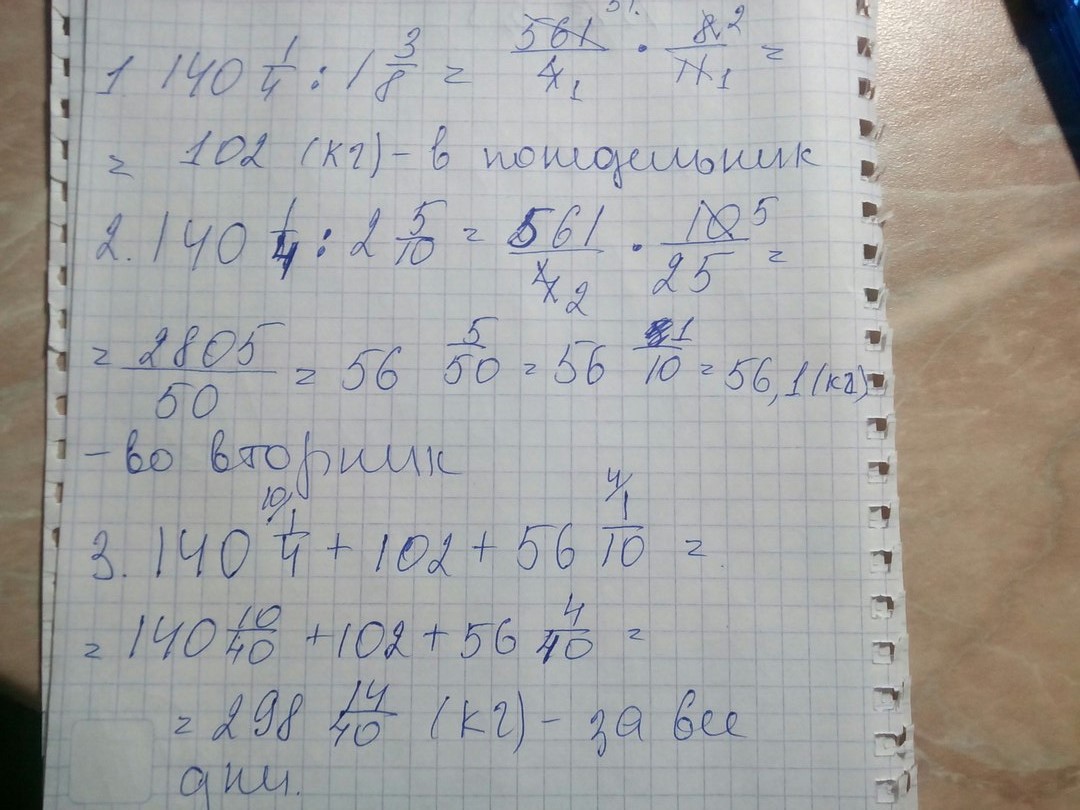 51
1. 140 1/4 : 1 3/8 = 561/4 1 · 8 2/11 1 =
= 102 (кг) - в понидельник
2. 140 1/4 : 2 5/10 = 561/4 2 · 10 5/25 =
= 2805/50 = 56 5/50 = 56 1/10 = 56,1 (кг)
- во вторник
10/ 4/
3. 140 1/4 + 102 + 56 1/10 =
= 140 10/40 + 102 + 56 4/40 =
= 298 14/40 (кг) - за все
дни.